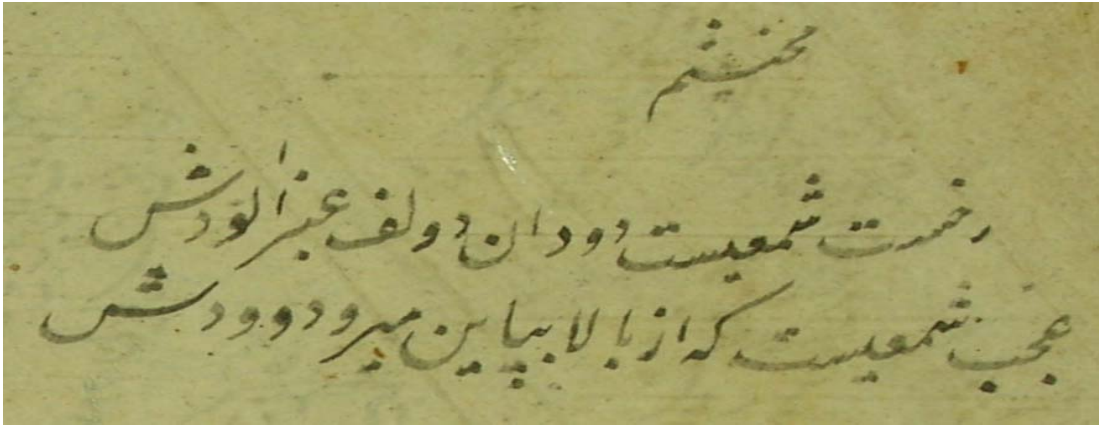 محتشم
رخت شمعیست دود ان دو لف عنبر الودش
عجب شمعیست که از بالا بپاین میرود دودش